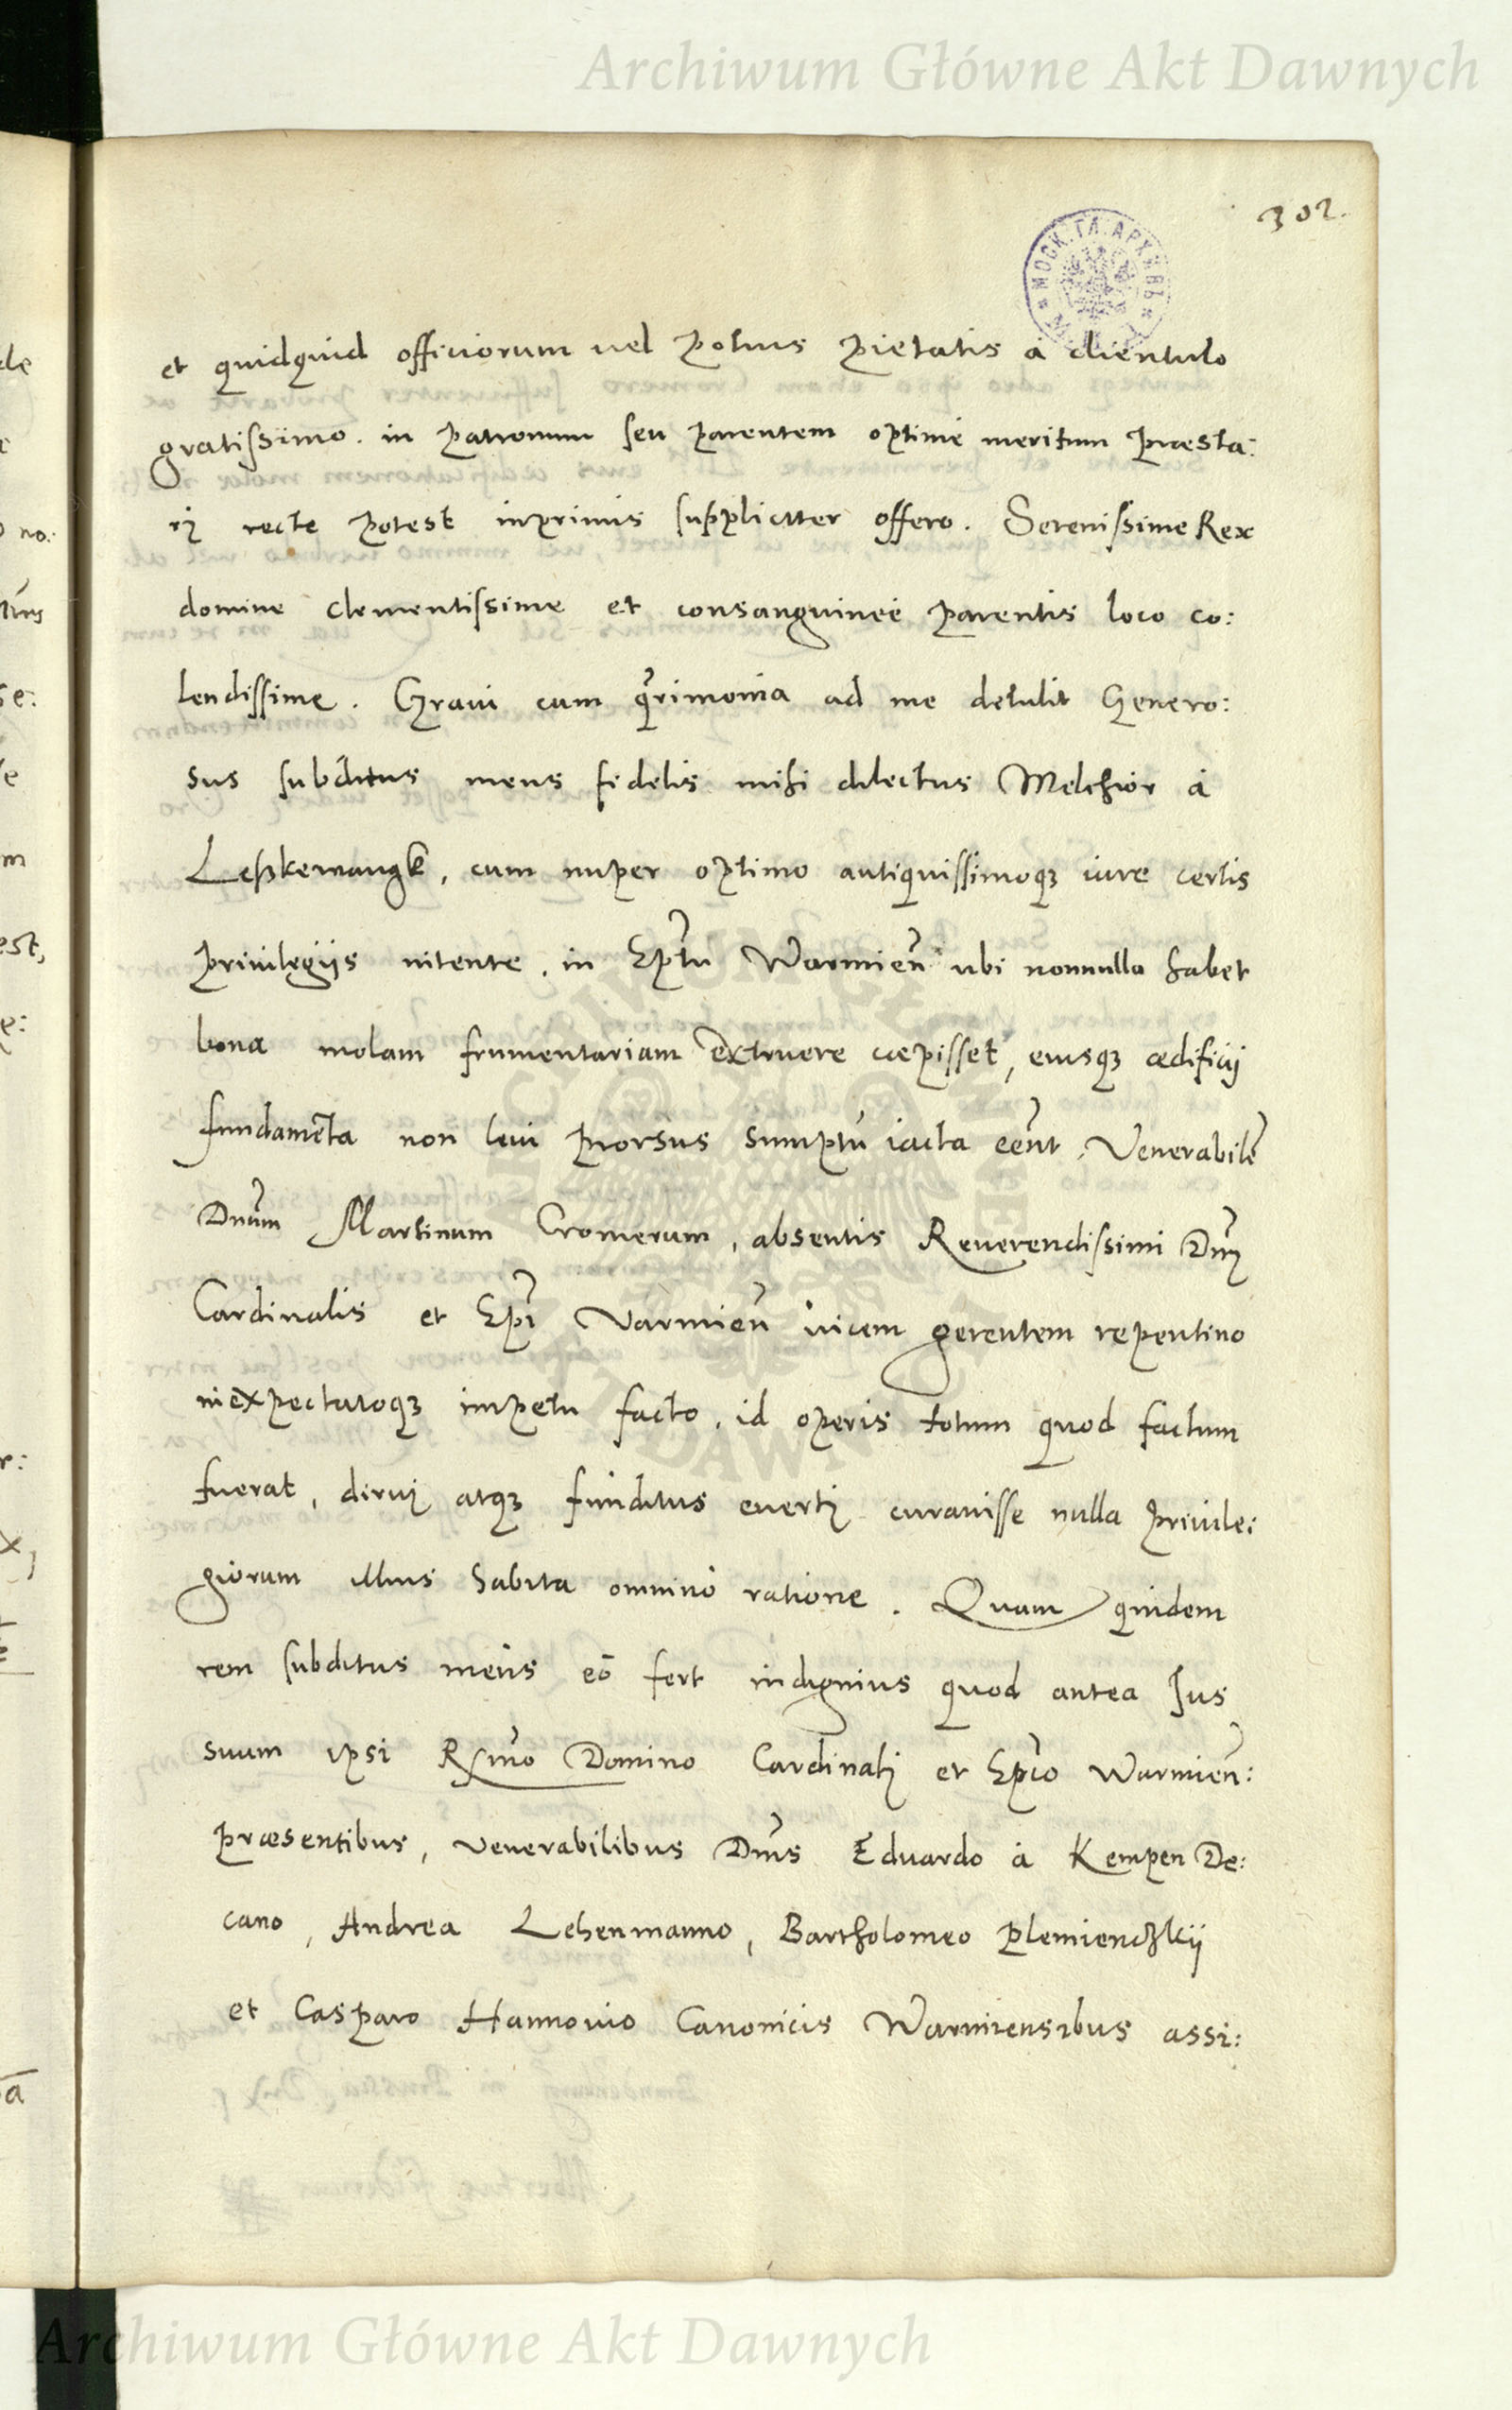 Archiwum Główne Akt Dawnych
302.
МОСК. ГЛ. АРХИВЪ
et quidquid officiorum vel potius pietatis à clientulo
gratissimo. in patronum seu parentem optime meritum præsta:
rj recte potest inprimis suppliciter offero. Serenissime Rex
domine clementissime et consanguinee parentis loco co:
lendissime. Graui cum qrimonia ad me detulit Genero:
sus subditus meus fidelis mihi dilectus Melchior à
Leßkewangk, cum nuper optimo antiquissimoqꝫ iure certis
priuilegijs nitente, in Eptu Warmien ubi nonnulla habet
bona molam frumentariam extruere cœpisset, eiusqꝫ ædificij
fundamēta non leui prorsus sumptu iacta eent, Venerabilē
Dnum Martinum Cromerum, absentis Reuerendissimi Dnj
Cardinalis et Epi Varmien uicem gerentem repentino
inexpectatoqꝫ impetu facto, id operis totum quod factum
fuerat, diruj atqꝫ funditus euertj curauisse nulla Priuile:
giorum illius habita omnino ratione. Quam quidem
rem subditus meus eo fert indignius quod antea Jus
suum ipsi Rmo Domino Cardinalj et Epo Warmien:
præsentibus, venerabilibus Dnis Eduardo à Kempen De:
cano, Andrea Lehenmanno, Bartholomeo Plemienczkij
et Casparo Hannouio Canonicis Warmiensibus assi:
Archiwum Główne Akt Dawnych